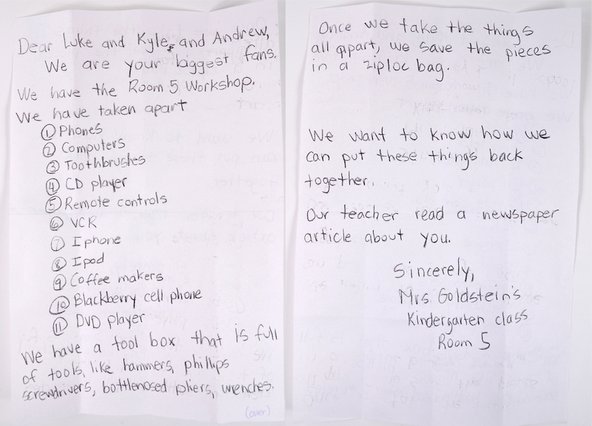 Dear Luke and Kyle, and Andrew,
We are your biggest fans.
We have the Room 5 Workshop.
We have taken apart
① Phones
② Computers
③ Toothbrushes
④ CD player
⑤ Remote controls
⑥ VCR
⑦ Iphone
⑧ Ipod
⑨ Coffee makers
⑩ Blackberry cell phone
⑪ DVD player
We have a tool box that is full
of tools, like hammers, phillips
screwdrivers, bottlenosed pliers, wrenches.
(over)
Once we take the things
all apart, we save the pieces
in a ziploc bag.
We want to know how we
can put these things back
together.
Our teacher read a newspaper
article about you.
Sincerely,
Mrs Goldstein's
Kindergarten class
Room 5